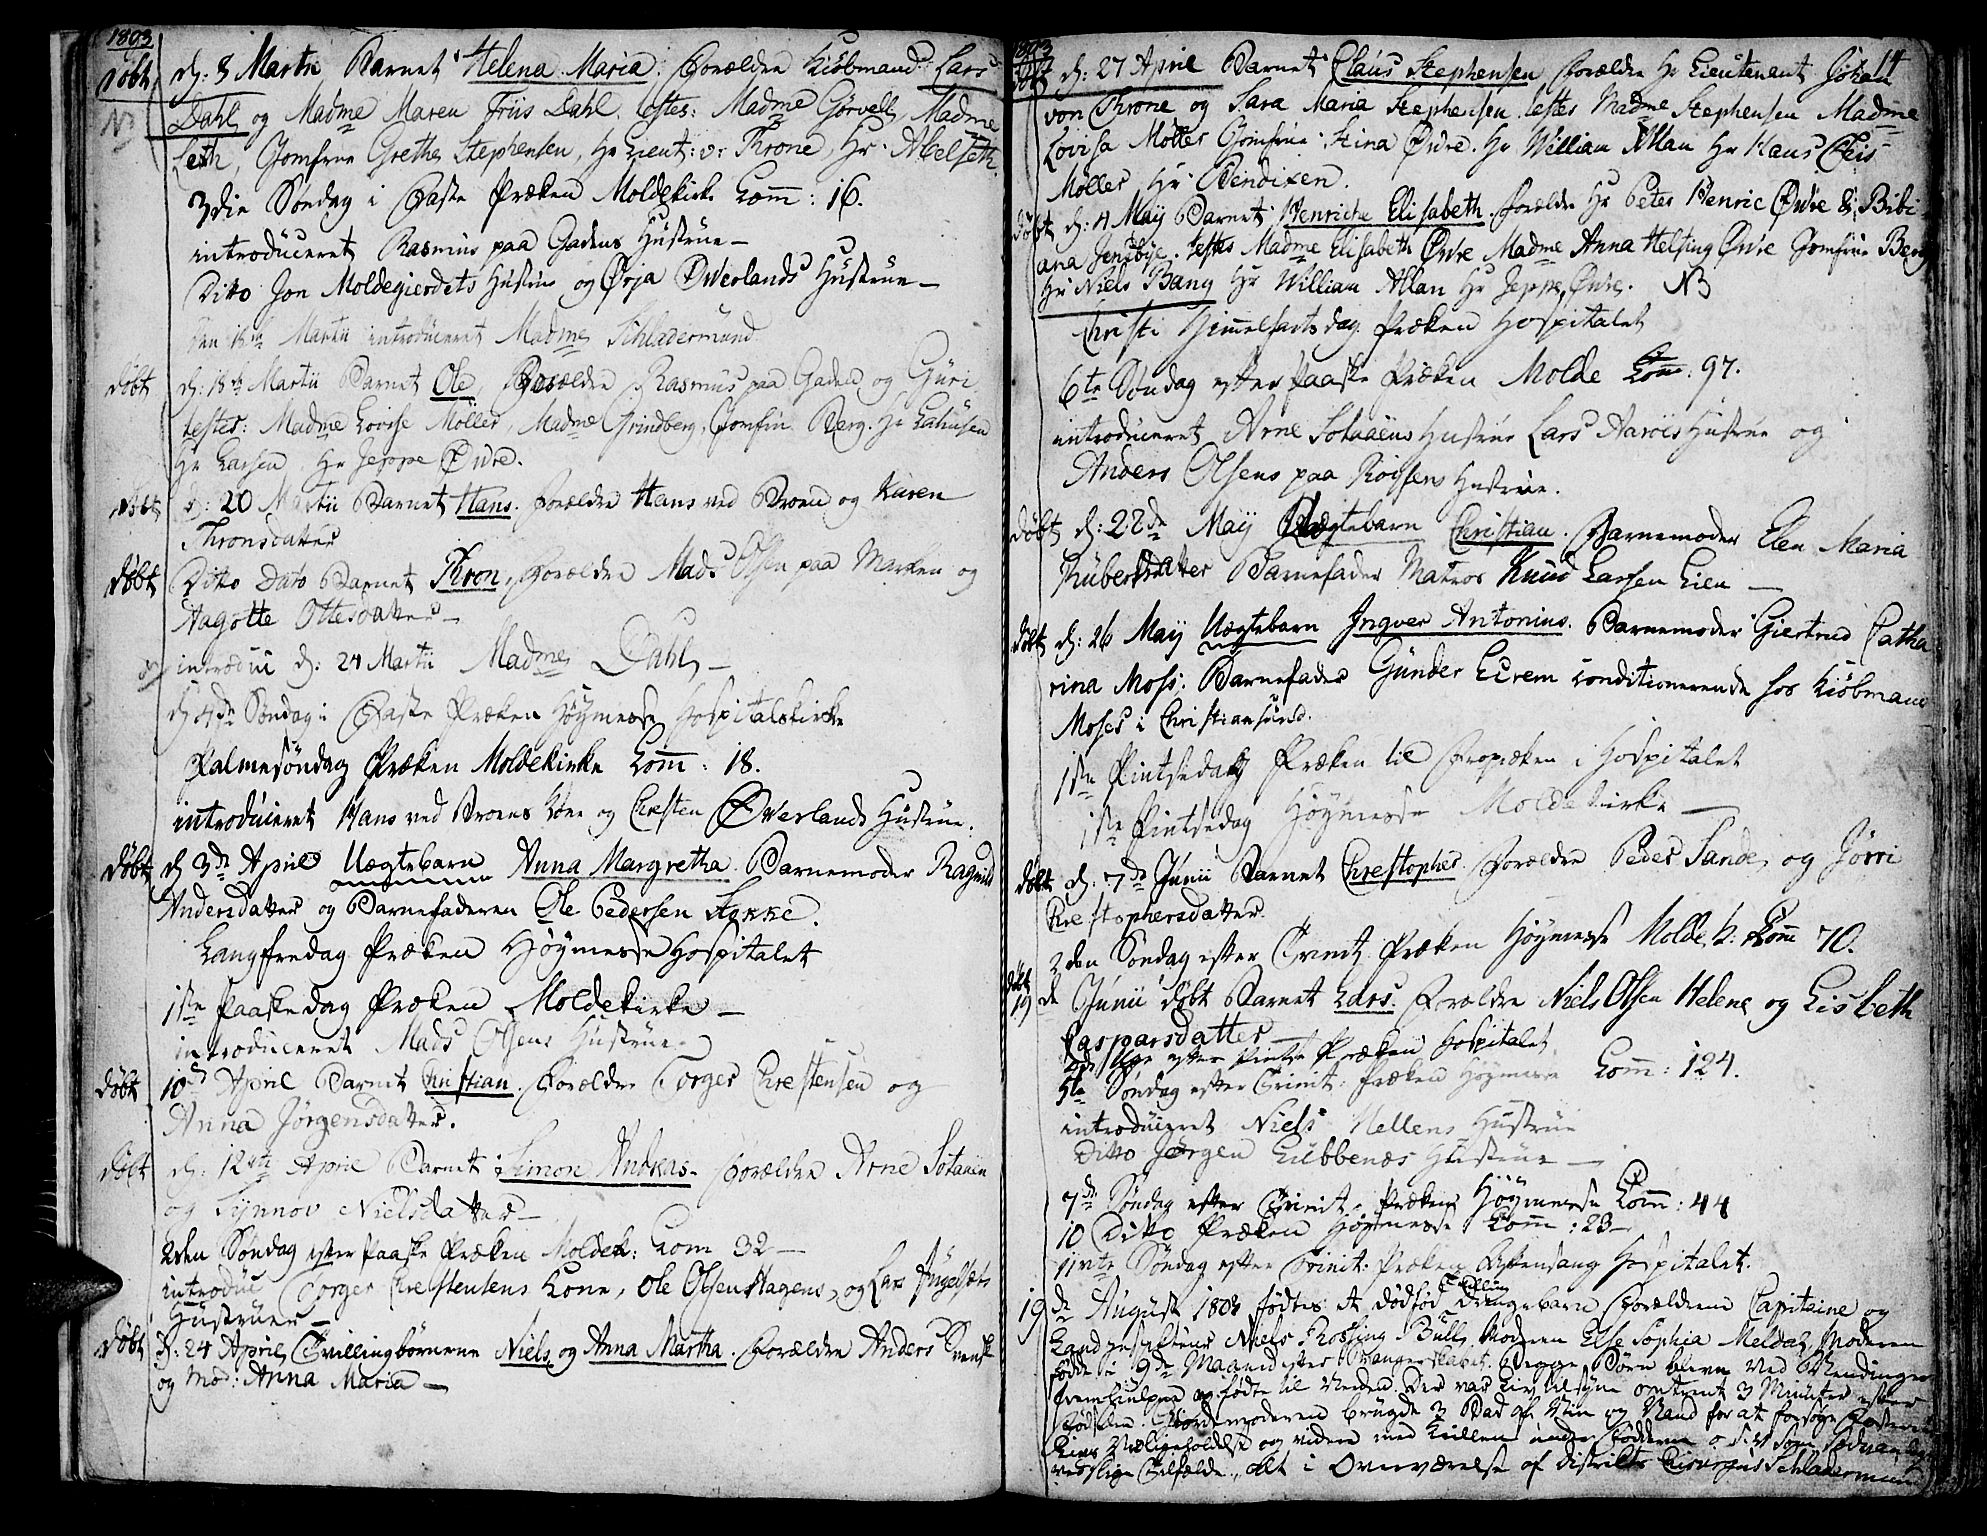 1803
døbt d: 8 Martii Barnet Helena Maria. Forældre Kiöbmand Lars
Dahl og Madme Maren Friis Dahl. testes: Madme Görvell, Madme
Leth, Jomfrue Grethe Stephensen, Hr Lieut: v: Throne, Hr. Abelseth.
3die Søndag i Faste Præken Moldekirke Com̄: 16.
introduceret Rasmus paa Gadens Hustrue —
Ditto Jon Moldegierdets Hustrue og Ørja Øverlands Hustrue —
den 18de Martii introduceret Madme Schladermund
døbt d: 18de Martii Barnet Ole, Forældre Rasmus paa Gaden og Guri
testes: Madme Lovise Möller, Madme Grindberg, Jomfru Berg. Hr Lahusen
Hr Larsen. Hr Jeppe Øvre.
døbt d: 20 Martii Barnet Hans. Forældre Hans ved Broen og Karen
Thronsdatter
døbt Ditto Dato Barnet Thron, Forældre Mads Olsen paa Marken og
Aagotte Ottesdatter —
introdu d: 24 Martii Madme Dahl —
d 4de Søndag i Faste Præken Höymesse Hospitalskirke
Palmesøndag Præken Moldekirke Com̄: 18.
introduceret Hans ved Broens Kone og Chresten Øverlands Hustrue.
døbt d 3de April Uægtebarn Anna Margretha. Barnemoder Ragnild
Andersdatter og Barnefaderen Ole Pedersen Stokke.
Langfredag Præken Höymesse Hospitalet
1ste Paaskedag Præken Moldekirke —
introduceret Mads Olsens Hustrue —
døbt 10de April Barnet Christian. Forældre Torger Chrestensen og
Anna Jørgensdatter.
døbt d: 12te April Barnet Simon Andreas. Forældre Arne Sotaaen
og Synnov Nielsdatter —
2den Søndag efter Paaske Præken Moldek: Com 32 —
introduc Torger Chrestensens Kone, Ole Olsen Hagens, og Lars Jngelsæts
Hustruer —
døbt d: 24 April Tvillingbørnene Niels og Anna Martha. Forældre Anders Svensk
og Mod: Anna Maria —
1803
14
døbt d: 27 April Barnet Claus Stephensen Forældre Hr Lieutenent Johan
von Throne og Sara Maria Stephensen. testes Madme Stephensen Madme
Lovisa Möller Jomfrue Stina Øvre. Hr William Allan Hr Hans Thiis
Möller Hr Bendixen.
døbt d: 4 Maÿ Barnet Henriche Elisabeth. Forældre Hr Peter Henric Øvre & Bibi
ana Jensbye. testes Madme Elisabeth Øvre Madme Anna Helsing Øvre Jomfrue Berg
Hr Niels Bang Hr William Allan Hr Jeppe Øvre. NB
Christi Himmelfartsdag Præken Hospitalet
6te Søndag efter Paaske Præken Molde Com: 97.
introduceret Arne Sotaaens Hustrue Lars Aaröes Hustrue og
Anders Olsens paa Röijsens Hustrue.
døbt d: 22de Maÿ Uægtebarn Christian. Barnemoder Elen Maria
Rubertsdatter Barnefader Matros Knud Larsen Lien —
døbt d: 26 Maÿ Uægtebarn Jngver Antonius. Barnemoder Giertrud Catha
rina Moss: Barnefader Gunder Eirem conditionerende hos Kiöbmand
Moses i Christiansund.
1ste Pintsedag Præken til Fropræken i Hospitalet
1ste Pintsedag Höymesse Moldekirke —
døbt d: 7de Junii Barnet Christopher. Forældre Peder Sande og Jörri
Christophersdatter.
2den Søndag efter Trinit. Præken Höymesse Molde k: Com̄ 70.
døbt 19de Junii døbt Barnet Lars. Forældre Niels Olsen Helene og Lisbeth
Caspersdatter —
efter Præken Hospitalet
5te Søndag efter Trinit: Præken Höymesse Com̄: 124.
introduceret Niels Hellens Hustrue
Ditto Jørgen Lubbenæs Hustrue —
7de Søndag efter Trinit. Præken Höymesse Com̄: 44
10 Ditto Præken Höymesse Com̄: 23 —
11vte Søndag efter Trinit: Præken Aftensang Hospitalet.
19de August 1803 fødtes et dødfød Tvilling Drengebarn Forældrene Capitaine og
Landinspekteur Niels Rossing Bull, Moderen Else Sophia Meldal, Moderen
fødte i 9de Maaned efter Svangerskabet. Begge Börn bleve ved Vendinger
fremhiulpen og fødte til Verden. Der var Liv tilsyne omtrent 3 Minuter efter
Fødselen. Giordemoderen brugte 3 Bad af Viin og Vand for at forsøge Fosterets
Livs Vedligeholdelse og videre med
veslige Tilfælde, alt i Overværelse af districts Chirurgus Schladermund